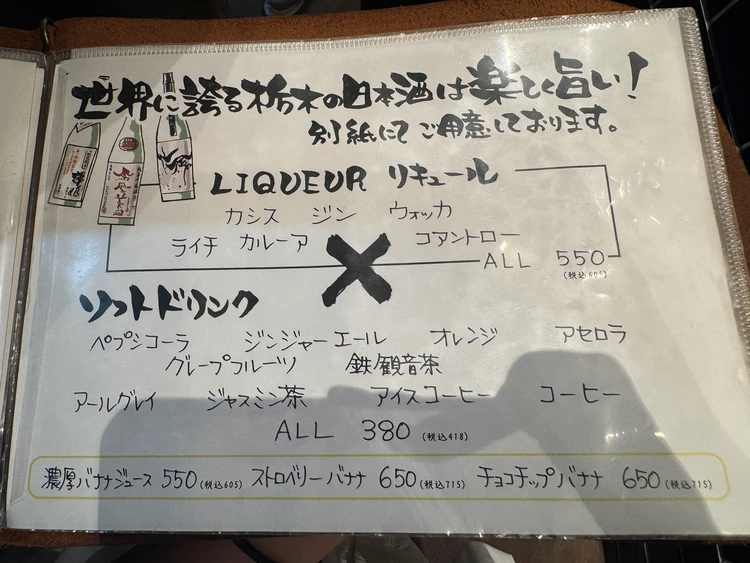 世界に誇る栃木の日本酒は楽しく旨い!
別紙にてご用意しております。
LIQUEUR リキュール
カシス ジン ウォッカ
ライチ カルーア コアントロー
ALL 550 (税込605)
ソフトドリンク
ペプシコーラ ジンジャーエール オレンジ アセロラ
グレープフルーツ 鉄観音茶
アールグレイ ジャスミン茶 アイスコーヒー コーヒー
ALL 380 (税込418)
濃厚バナナジュース 550 (税込605) ストロベリーバナナ 650 (税込715) チョコチップバナナ 650 (税込715)